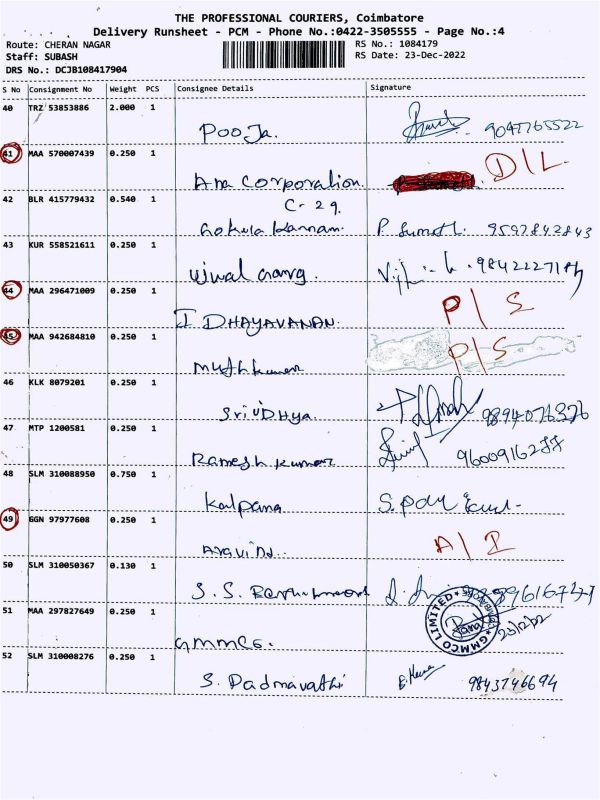 THE PROFESSIONAL COURIERS, Coimbatore
Delivery Runsheet - PCM - Phone No.:0422-3505555 - Page No.:4
Route: CHERAN NAGAR
RS No.: 1084179
Staff: SUBASH
RS Date: 23-Dec-2022
DRS No.: DCJB108417904
S No Consignment No Weight PCS Consignee Details Signature
40 TRZ 53853886 2.000 1
Pooja 9047765522
41 MAA 570007439 0.250 1
D/L
Ana Corporation
42 BLR 415779432 0.540 1
C-29
Gokula Kannam P Sumathi 9597842843
43 KUR 558521611 0.250 1
Ujwal
44 MAA 296471009 0.250 1
P/S
I DHAYAVANAN
45 MAA 942684810 0.250 1
P/S
Muthkumar
46 KLK 8079201 0.250 1
Sri ViDHya 9894076326
47 MTP 1200581 0.250 1
Ramesh kumar
48 SLM 310088950 0.750 1
Kalpana
49 GGN 97977608 0.250 1
A/I
Aravind
50 SLM 310050367 0.130 1
S.S.
51 MAA 297827649 0.250 1
GMMCO LIMITED
GMMCO
52 SLM 310008276 0.250 1
S. Padmavathi 9843746694